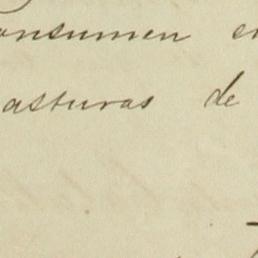 consumen en
pasturas de